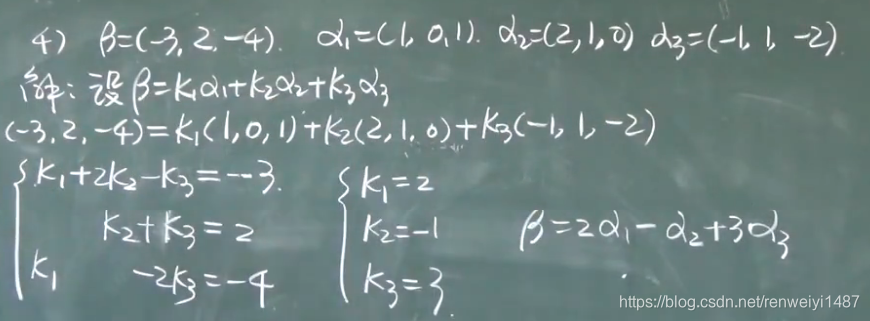 4) β=(-3, 2, -4). α₁=(1, 0, 1). α₂=(2, 1, 0) α₃=(-1, 1, -2).
解: 设 β=K₁α₁+K₂α₂+K₃α₃
(-3, 2, -4)=K₁(1, 0, 1)+K₂(2, 1, 0)+K₃(-1, 1, -2)
{ K₁+2K₂-K₃=-3. { K₁=2
K₂+K₃=2 K₂=-1 β=2α₁-α₂+3α₃
K₁ -2K₃=-4 K₃=3
https://blog.csdn.net/renweiyi1487